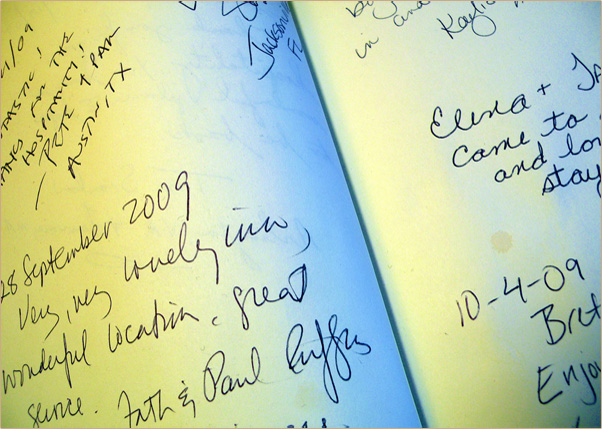 /09
TASTIC!
FOR THE
HOSPITALITY!
- PETE & PAM
AUSTIN, TX
Jackson
FL
28 September 2009
Very, very lovely inn,
wonderful location, great
service. Faith & Paul
in and
Kaylie
Elena + Ja
Came to
and lo
stay
10-4-09
Bret
Enjo